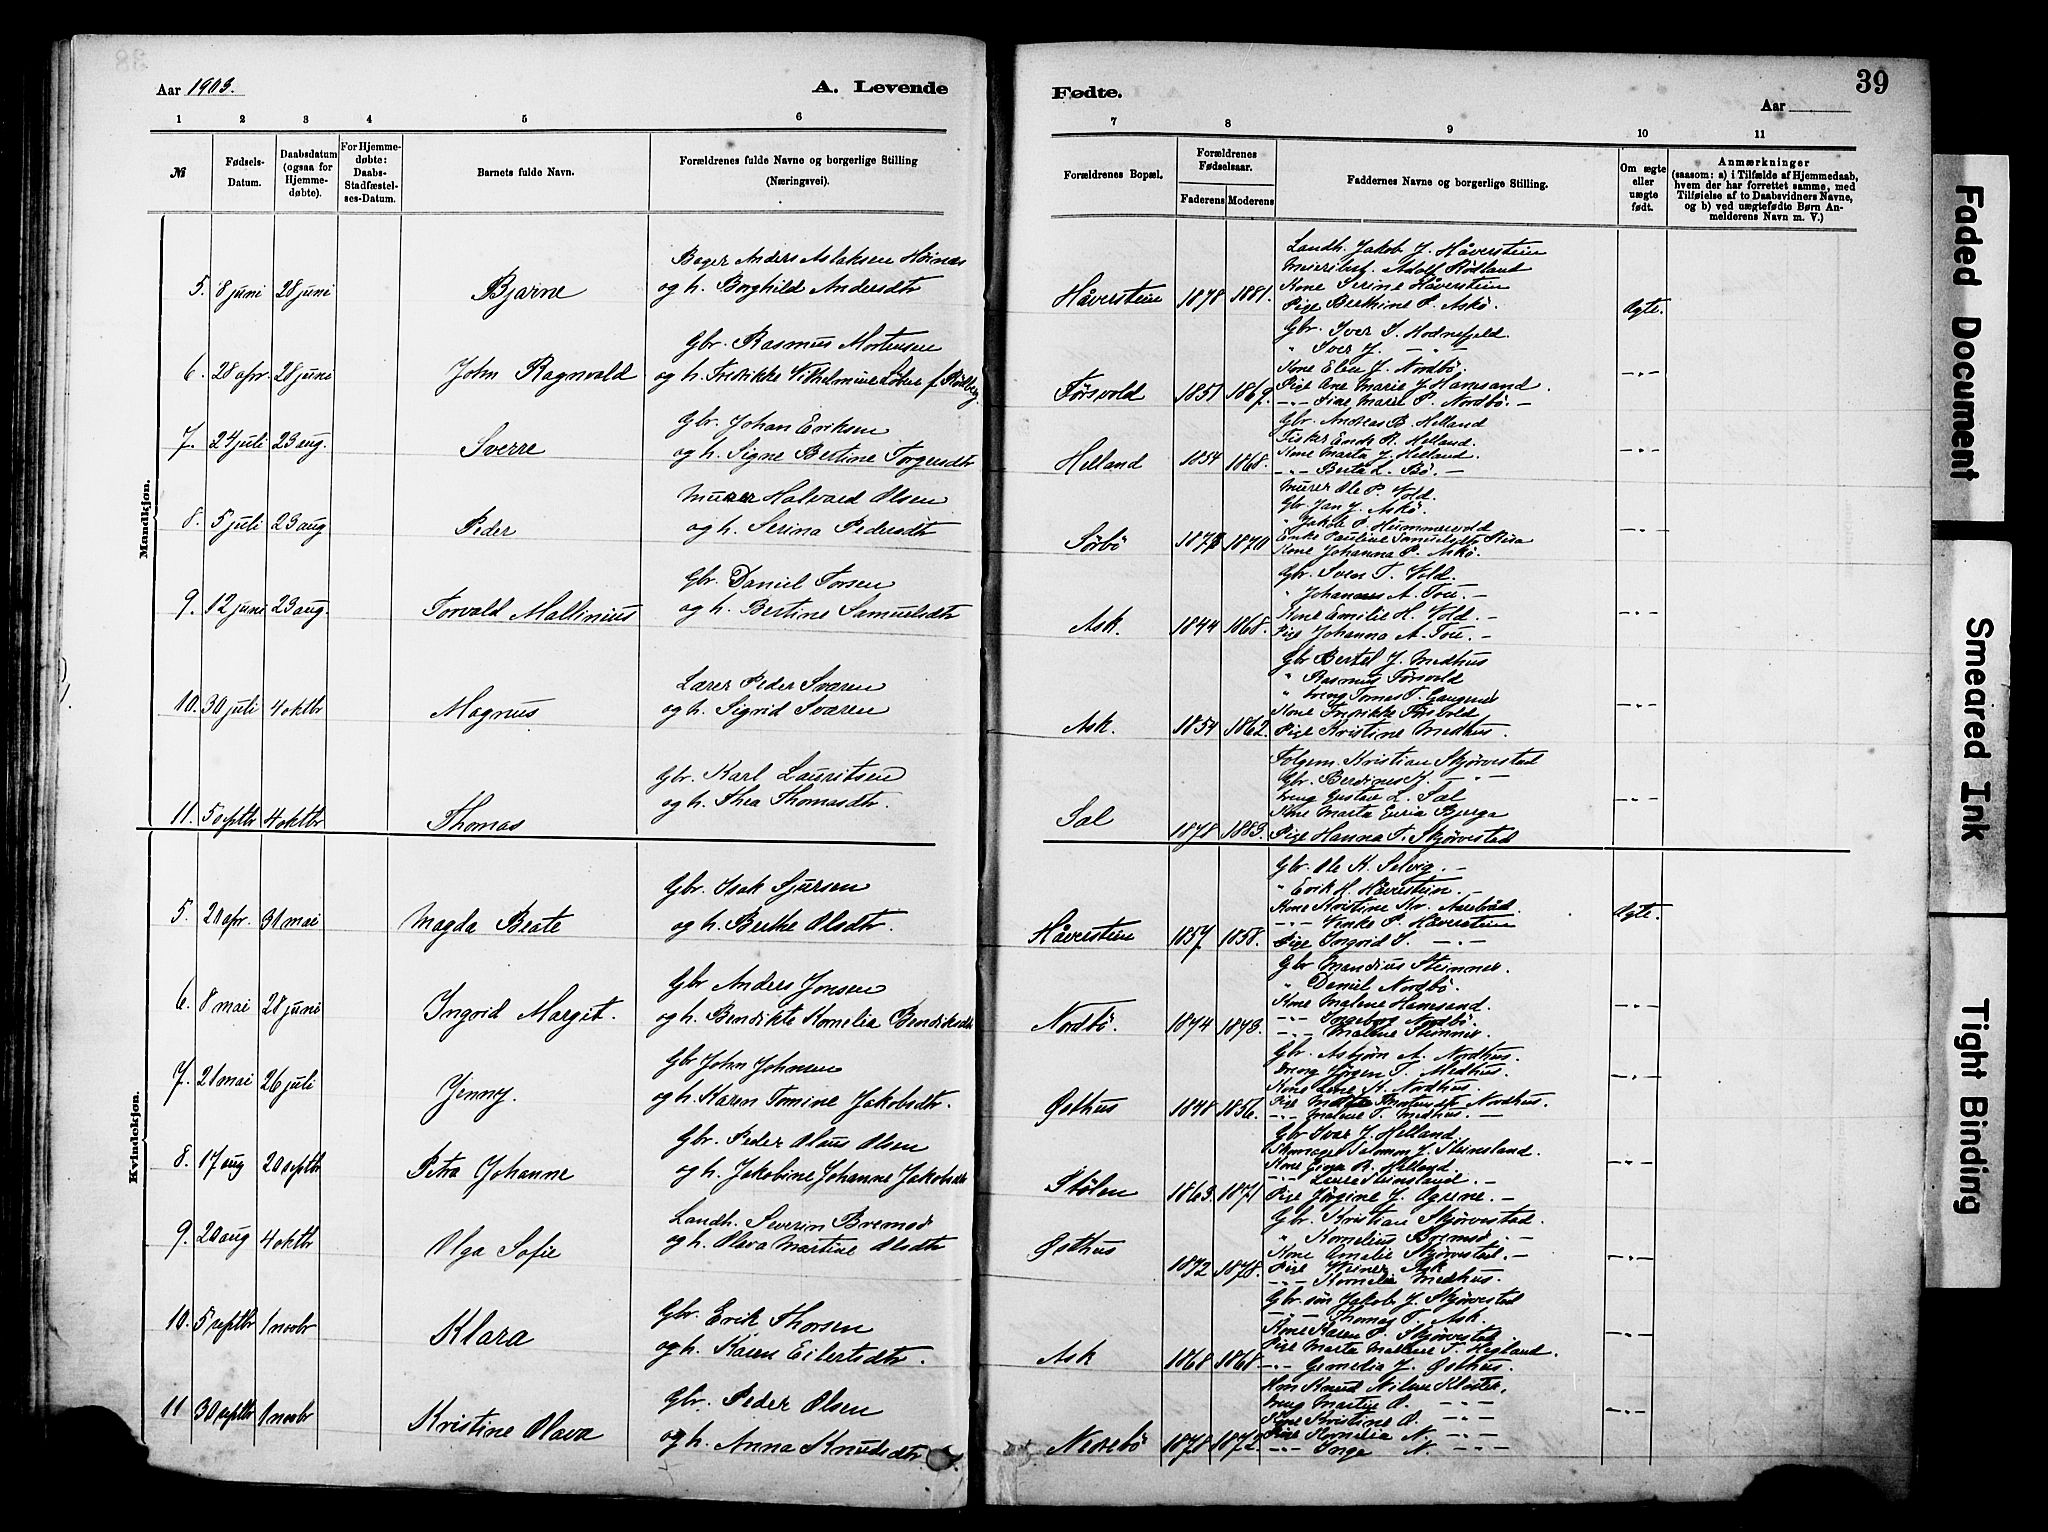 Aar 1903.
A. Levende
Fødte.
39
Aar
1 2 3 4 5 6 7 8 9 10 11
№
Fødsels-
Datum.
Daabsdatum
(ogsaa for
Hjemme-
døbte).
For Hjemme-
døbte:
Daabs-
Stadfæstel-
ses-Datum.
Barnets fulde Navn.
Forældrenes fulde Navne og borgerlige Stilling
(Næringsvei).
Forældrenes Bopæl.
Forældrenes
Fødselsaar.
Faderens Moderens
Faddernes Navne og borgerlige Stilling.
Om ægte
eller
uægte
født.
Anmærkninger
(saasom: a) i Tilfælde af Hjemmedaab,
hvem der har forrettet samme, med
Tilføielse af to Daabsvidners Navne,
og b) ved uægtefødte Børn An-
melderens Navn m. V.)
Mandkjøn.
5. 8 juni 28 juni Bjarne
Bager Anders Aslaksen Høines
og h. Borghild Andersdtr
Håverstein 1878 1881.
Landh. Jakob J. Håverstein
Meieribest. Adolf Rødland
Kone Serine Håverstein
Pige Berthine P. Askø.
Ægte.
6. 28 apr. 28 juni John Ragnvald
Gbr. Rasmus Mortensen
og h. Fredrikke Vilhelmine
Førsvold 1851 1869.
Gbr. Iver S. Hodnefjeld.
" Iver J. -"-
Kone Elen J. Nordbø.
Pige Ane Marie J. Hamsand.
-"- Sine Marie P. Nordbø. -
-"-
7. 24 juli 23 aug. Sverre
Gbr. Johan Eriksen
og h. Signe Bertine Torgersdtr
Helland 1854 1868.
Gbr. Andreas B. Helland
Fisker Endr. R. Helland.
Kone Marta J. Helland.
-"- Berta L. Bø. -
-"-
8. 5 juli 23 aug Peder
Murer Halvard Olsen
og h. Serina Pedersdtr
Sørbø 1870.
Murer Ole P. Vold.
Gbr. Jan J. Askø.
" Jakob P. Hummervold
Enke Pauline Samuelsdtr
Kone Johanna P. Askø.
-"-
9. 12 juni 23 aug. Torvald Mallinius
Gbr. Daniel Torsen
og h. Bertine Samuelsdtr
Ask. 1844 1868.
Gbr. Sven T. Vold.
" Johannes A. Tou. -
Kone Emilie H. Vold -
Pige Johanna A. Tou. -
-"-
10. 30 juli 4 oktbr Magnus
Lærer Peder Sværen
og h. Sigrid Sværen
Ask. 1854 1862.
Gbr Bertel J. Medhus
" Rasmus Førsvold
" Dreng Tomas T.
Kone Fredrikke Førsvold
Pige Kristine Medhus.
-"-
11. 5 septbr 4 oktbr Thomas
Gbr. Karl Lauritsen
og h. Thea Thomasdtr.
Sæl 1878 1883.
Folgem. Kristian Skjørvestad
Gbr. Berdines K. -"-
Dreng Gustav L. Sæl
Kone Marta Bjerga
Pige Hanna T. Skjørvestad
-"-
Kvindekjøn.
5. 21 apr. 31 mai Magda Beate
Gbr. Isak Sjursen
og h. Berthe Olsdtr.
Håverstein 1857 1858.
Gbr. Ole K. Selvig. -
" Erik H. Håverstein. -
Kone Kristine
-"- P. Håverstein
Pige Ingrid I. -"-
Ægte.
6. 8 mai 28 juni Ingrid Margit.
Gbr Anders Jonsen
og h. Bendikte Kornelia Bendiksdtr
Nordbø. 1844 1843.
Gbr Mandius Steinnes
" Daniel Nordbø.
Kone Malene Hamsand.
-"- Ingeborg Nordbø.
-"- Malene Steinnes.
-"-
7. 21 mai 26 juli Jenny.
Gbr John Johnsen
og h. Karen Tomine Jakobsdtr.
Østhus 1848 1856.
Gbr. Asbjørn A. Nordhus.
Dreng Jørgen T. Medhus.
Kone Lene K. Nordhus.
Pige Nordhus.
-"- Malene T. Medhus. -
-"-
8. 17 aug 20 septbr Petra Johanne
Gbr. Peder Olaus Olsen
og h. Jakobine Johanne Jakobsdtr
Stølen 1863 1871
Gbr Ivar J. Helland.
Salomon J. Steinsland.
Kone R. Helland.
-"- Steinsland. -
Pige Jørgine J. -
-"-
9. 20 aug 4 oktbr Olga Sofie
Landh. Severin Bremsø
og h. Olava Martine Olsdtr
Østhus 1872 1878.
Gbr. Kristian Skjørvestad.
" Kornelius Bremsø. -
Kone Amalie Skjørvestad. -
Pige Ask
-"- Kornelia Medhus.
-"-
10. 5 septbr 1 novbr Klara
Gbr. Erik Thorsen
og h. Karen Eilertsdtr.
Ask 1868 1868
Gbr. søn Jakob J. Skjørvestad
-"- Thomas T. Ask.
Kone Karen P. Skjørvestad
Pige Marta Malene T. Høgland.
-"- J. Østhus.
-"-
11 30 septbr 1 novbr Kristine Olava
Gbr. Peder Olsen
og h. Anna Knudsdtr
Nedrebø 1878 1872.
Knud Nilsen Kloster,
Dreng Martin O. -"-
Kone Kristine O. -"-
Pige Kornelia N. -"-
-"- Inga N. -"-
-"-
Faded Document
Smeared Ink
Tight Binding